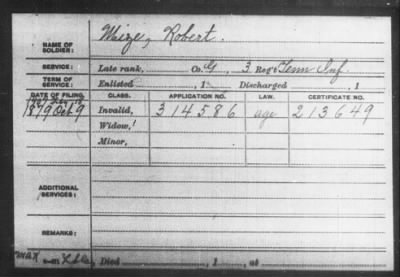 NAME OF SOLDIER: Maize, Robert.
SERVICE: Late rank, Co. G, 3 Reg't Tenn Inf.
TERM OF SERVICE: Enlisted , 1 Discharged , 1
DATE OF FILING. CLASS. APPLICATION NO. LAW. CERTIFICATE NO.
1879 Oct 9 Invalid, 314586 age 213649
Widow,
Minor,
ADDITIONAL SERVICES:
REMARKS:
Died , 1 , at